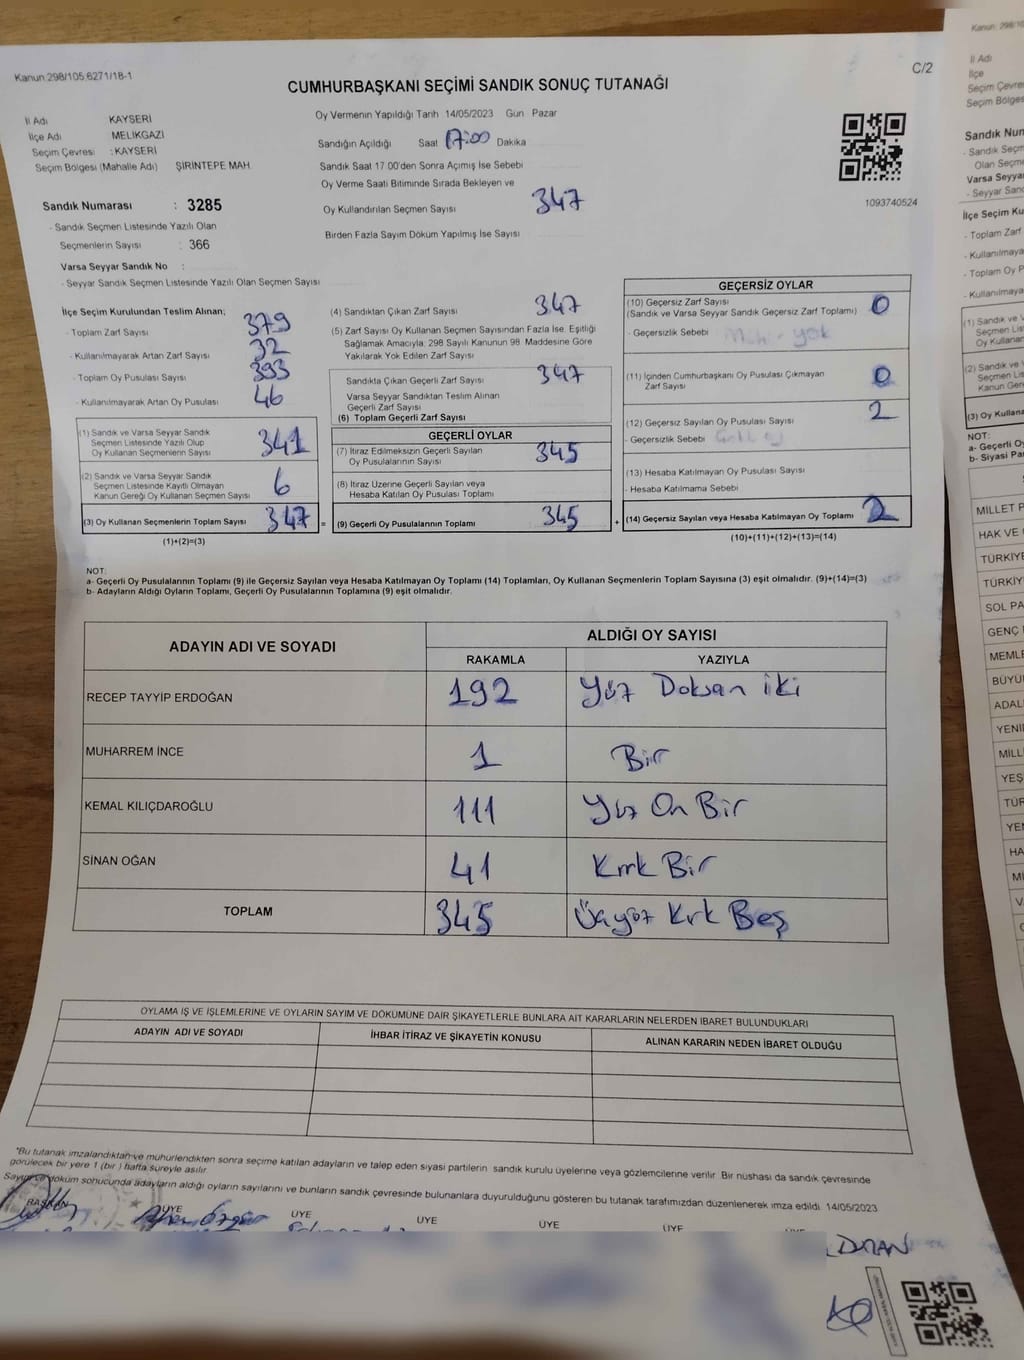 Kanun:298/105,6271/18-1
C/2
CUMHURBAŞKANI SEÇİMİ SANDIK SONUÇ TUTANAĞI
İl Adı KAYSERİ
İlçe Adı MELİKGAZİ
Seçim Çevresi : KAYSERİ
Seçim Bölgesi (Mahalle Adı) ŞİRİNTEPE MAH.
Sandık Numarası : 3285
- Sandık Seçmen Listesinde Yazılı Olan
Seçmenlerin Sayısı : 366
Varsa Seyyar Sandık No :
- Seyyar Sandık Seçmen Listesinde Yazılı Olan Seçmen Sayısı
Oy Vermenin Yapıldığı Tarih 14/05/2023 Gün Pazar
Sandığın Açıldığı Saat 17:00 Dakika
Sandık Saat 17.00'den Sonra Açımış İse Sebebi
Oy Verme Saati Bitiminde Sırada Bekleyen ve
Oy Kullandırılan Seçmen Sayısı 347
Birden Fazla Sayım Döküm Yapılmış İse Sayısı
1093740524
İlçe Seçim Kurulundan Teslim Alınan;
- Toplam Zarf Sayısı 379
- Kullanılmayarak Artan Zarf Sayısı 32
- Toplam Oy Pusulası Sayısı 393
- Kullanılmayarak Artan Oy Pusulası 46
(1) Sandık ve Varsa Seyyar Sandık
Seçmen Listesinde Yazılı Olup
Oy Kullanan Seçmenlerin Sayısı 341
(2) Sandık ve Varsa Seyyar Sandık
Seçmen Listesinde Kayıtlı Olmayan
Kanun Gereği Oy Kullanan Seçmen Sayısı 6
(3) Oy Kullanan Seçmenlerin Toplam Sayısı 347 =
(1)+(2)=(3)
(4) Sandıktan Çıkan Zarf Sayısı 347
(5) Zarf Sayısı Oy Kullanan Seçmen Sayısından Fazla İse, Eşitliği
Sağlamak Amacıyla; 298 Sayılı Kanunun 98. Maddesine Göre
Yakılarak Yok Edilen Zarf Sayısı
Sandıkta Çıkan Geçerli Zarf Sayısı 347
Varsa Seyyar Sandıktan Teslim Alınan
Geçerli Zarf Sayısı
(6) Toplam Geçerli Zarf Sayısı
GEÇERLİ OYLAR
(7) İtiraz Edilmeksizin Geçerli Sayılan
Oy Pusulalarının Sayısı 345
(8) İtiraz Üzerine Geçerli Sayılan veya
Hesaba Katılan Oy Pusulası Toplamı
(9) Geçerli Oy Pusulalarının Toplamı 345 +
GEÇERSİZ OYLAR
(10) Geçersiz Zarf Sayısı
(Sandık ve Varsa Seyyar Sandık Geçersiz Zarf Toplamı) 0
- Geçersizlik Sebebi Mühür yok
(11) İçinden Cumhurbaşkanı Oy Pusulası Çıkmayan
Zarf Sayısı 0
(12) Geçersiz Sayılan Oy Pusulası Sayısı 2
- Geçersizlik Sebebi
(13) Hesaba Katılmayan Oy Pusulası Sayısı
- Hesaba Katılmama Sebebi
(14) Geçersiz Sayılan veya Hesaba Katılmayan Oy Toplamı 2
(10)+(11)+(12)+(13)=(14)
NOT:
a- Geçerli Oy Pusulalarının Toplamı (9) ile Geçersiz Sayılan veya Hesaba Katılmayan Oy Toplamı (14) Toplamları, Oy Kullanan Seçmenlerin Toplam Sayısına (3) eşit olmalıdır. (9)+(14)=(3)
b- Adayların Aldığı Oyların Toplamı, Geçerli Oy Pusulalarının Toplamına (9) eşit olmalıdır.
ADAYIN ADI VE SOYADI ALDIĞI OY SAYISI
RAKAMLA YAZIYLA
RECEP TAYYİP ERDOĞAN 192 Yüz Doksan iki
MUHARREM İNCE 1 Bir
KEMAL KILIÇDAROĞLU 111 Yüz On Bir
SİNAN OĞAN 41 Kırk Bir
TOPLAM 345 Üçyüz Kırk Beş
OYLAMA İŞ VE İŞLEMLERİNE VE OYLARIN SAYIM VE DÖKÜMÜNE DAİR ŞİKAYETLERLE BUNLARA AİT KARARLARIN NELERDEN İBARET BULUNDUKLARI
ADAYIN ADI VE SOYADI İHBAR İTİRAZ VE ŞİKAYETİN KONUSU ALINAN KARARIN NEDEN İBARET OLDUĞU
"Bu tutanak imzalandıktan ve mühürlendikten sonra seçime katılan adayların ve talep eden siyasi partilerin sandık kurulu üyelerine veya gözlemcilerine verilir. Bir nüshası da sandık çevresinde
görülecek bir yere 1 (bir ) hafta süreyle asılır.
Sayım ve döküm sonucunda adayların aldığı oyların sayılarını ve bunların sandık çevresinde bulunanlara duyurulduğunu gösteren bu tutanak tarafımızdan düzenlenerek imza edildi. 14/05/2023
BAŞKAN ÜYE ÜYE ÜYE ÜYE ÜYE ÜYE
Kanun: 298/10
İl Adı
İlçe
Seçim Çevre
Seçim Bölges
Sandık Num
- Sandık Seçm
Olan Seçme
Varsa Seyya
- Seyyar Sand
İlçe Seçim Ku
- Toplam Zarf
- Kullanılmaya
- Toplam Oy P
- Kullanılmaya
(1) Sandık ve V
Seçmen List
Oy Kullanan
(2) Sandık ve Va
Seçmen Lis
Kanun Gere
(3) Oy Kullan
NOT:
a- Geçerli O
b- Siyasi Par
MİLLET P
HAK VE
TÜRKİYE
TÜRKİY
SOL PA
GENÇ
MEMLE
BÜYÜ
ADAL
YENİ
MİLL
YEŞ
TÜR
YE
HA